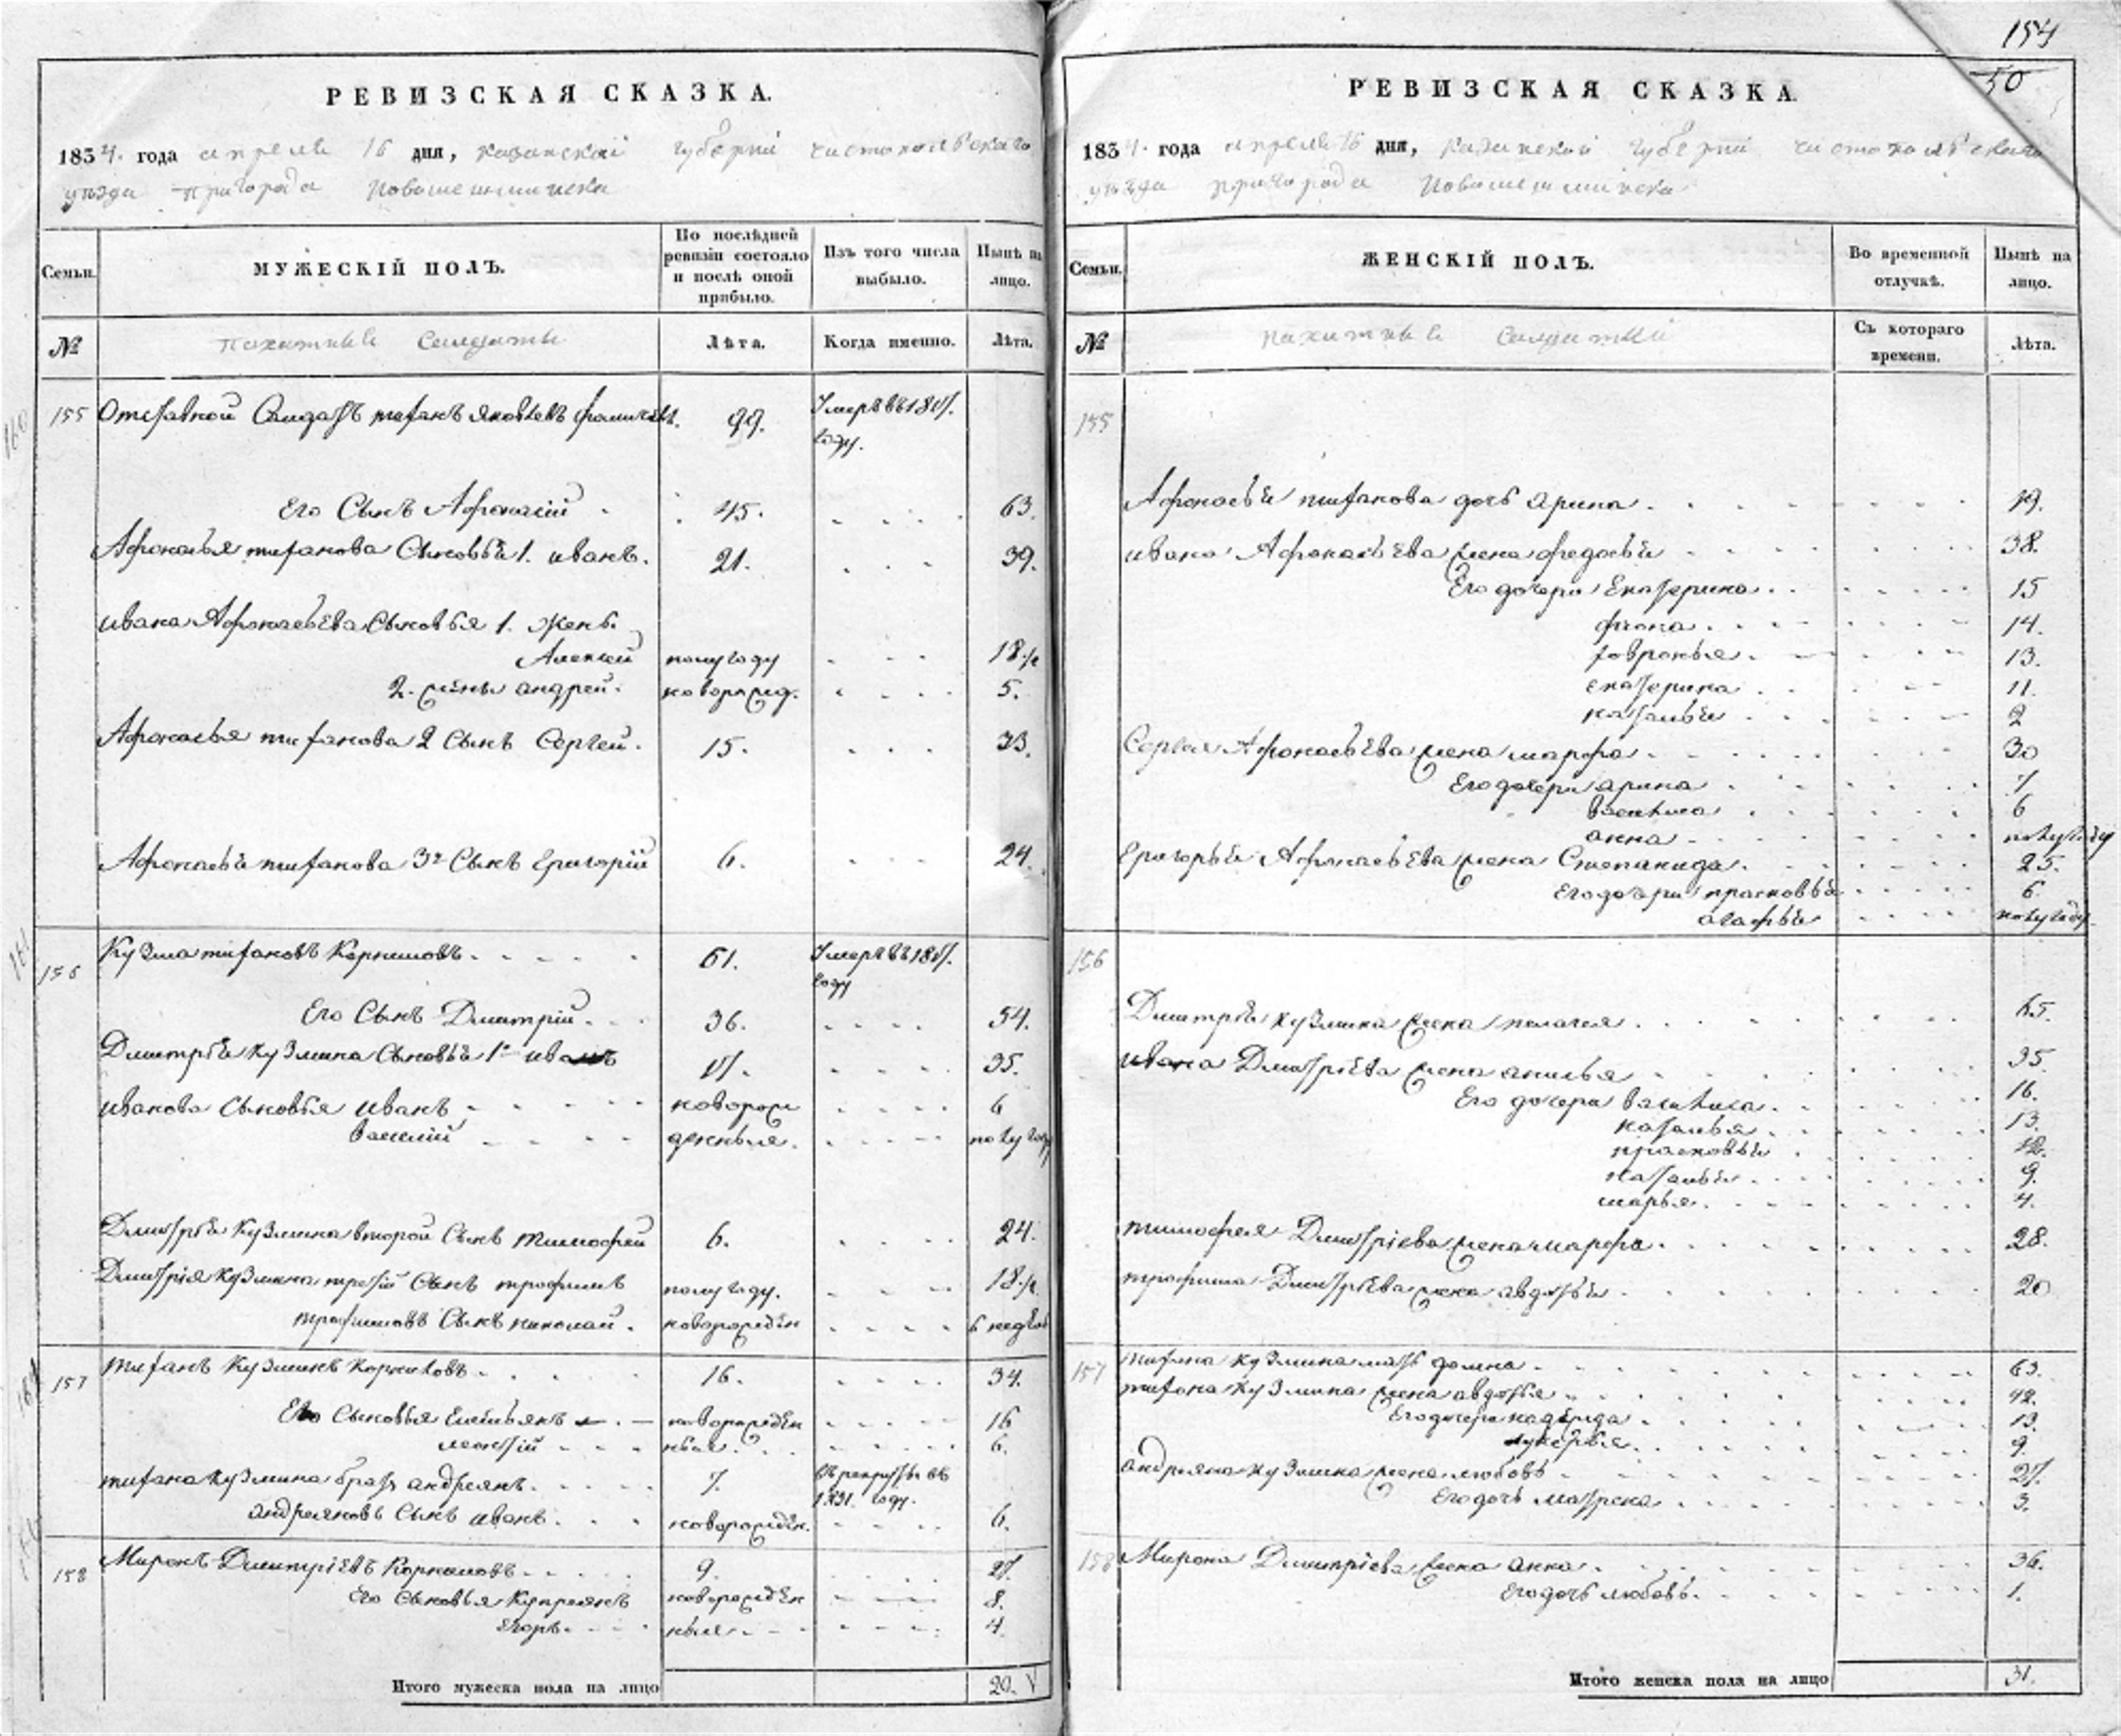 154
50
РЕВИЗСКАЯ СКАЗКА.
1834. года апреля 16 дня, казанской губерніи чистопольскаго
уѣзда пригорода Новошешминска
Семьи.
МУЖЕСКІЙ ПОЛЪ.
По послѣдней ревизіи состояло и послѣ оной прибыло.
Изъ того числа выбыло.
Нынѣ на лицо.
№
пахатные солдаты
Лѣта.
Когда именно.
Лѣта.
155 Отставной Солдатъ титанъ яковлевъ 99. Умеръ въ 18 году.
Его Сынъ Афонасій 45. 63.
Афонасья титанова Сыновья 1. иванъ. 21. 39.
ивана Афонасьева Сыновья 1. жены
Алексей полугоду 18 1/2
2. жены андрей. новорожд. 5.
Афонасья титанова 2 Сынъ Сергей. 15. 33.
Афонасья титанова 3й Сынъ Григорій 6. 24.
156 Кузма титановъ Корниловъ 61. Умеръ въ 18 году
Его Сынъ Дмитрій 36. 54.
Дмитрія кузмина Сыновья 1й иванъ 17. 35.
иванова Сыновья иванъ новорож 6
василій денныя. полугоду
Дмитрія Кузмина второй Сынъ тимофей 6. 24.
Дмитрія Кузмина третій Сынъ трофимъ полугоду. 18 1/2
трофимовъ Сынъ николай. новорожден 6 недѣль
157 титанъ Кузминъ Корниловъ 16. 34.
Его Сыновья Емельянъ новорожден 16
леонтій ныя. 6.
титана Кузмина братъ андреянъ. 7. въ рекруты въ 1831. году.
андреяновъ Сынъ иванъ. новорожден. 6.
158 Миронъ Дмитріевъ Корниловъ 9. 27.
Его Сыновья Купреянъ новорожден 8.
Егоръ ныя 4.
Итого мужеска пола на лицо 20.
РЕВИЗСКАЯ СКАЗКА.
1834. года апреля 16 дня, казанской губерніи чистопольскаго
уѣзда пригорода Новошешминска
Семьи.
ЖЕНСКІЙ ПОЛЪ.
Во временной отлучкѣ.
Нынѣ на лицо.
№
пахатные солдаты
Съ котораго времени.
Лѣта.
155
Афонасья титанова дочь арина 19.
ивана Афонасьева жена федосья 38.
Его дочери Екатерина 15
фиона 14.
ховронья 13.
екатерина 11.
наталья 2
Сергея Афонасьева жена марфа 30
Его дочери арина 7
василиса 6
анна полугоду
Григорья Афонасьева жена Степанида 25.
Его дочери прасковья 6.
агафья полугоду.
156
Дмитрія кузмина жена пелагея 65.
ивана Дмитріева жена анисья 35.
Его дочери василиса 16.
наталья 13.
прасковья 12.
наталья 9.
марья 4.
тимофея Дмитріева жена марфа 28.
трофима Дмитріева жена авдотья 20
157 титана кузмина мать домна 63.
титана кузмина жена авдотья 42.
Его дочери надежда 13.
лукерья 9.
андреяна кузмина жена любовь 27.
Его дочь матрена 3.
158 Мирона Дмитріева жена анна 36.
Его дочь любовь. 1.
Итого женска пола на лицо 31.